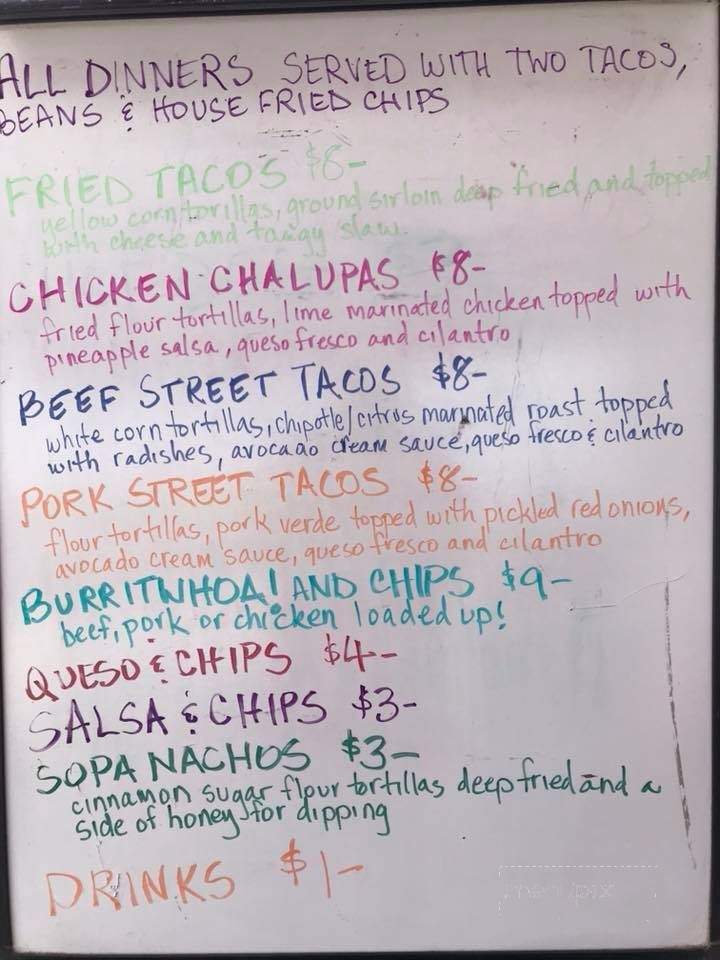 ALL DINNERS SERVED WITH TWO TACOS,
BEANS & HOUSE FRIED CHIPS
FRIED TACOS $8-
yellow corn tortillas, ground sirloin deep fried and topped
with cheese and tangy slaw.
CHICKEN CHALUPAS $8-
fried flour tortillas, lime marinated chicken topped with
pineapple salsa, queso fresco and cilantro
BEEF STREET TACOS $8-
white corn tortillas, chipotle/citrus marinated roast topped
with radishes, avocado cream sauce, queso fresco & cilantro
PORK STREET TACOS $8-
flour tortillas, pork verde topped with pickled red onions,
avocado cream sauce, queso fresco and cilantro
BURRITWHOA! AND CHIPS $9-
beef, pork or chicken loaded up!
QUESO & CHIPS $4-
SALSA & CHIPS $3-
SOPA NACHOS $3-
cinnamon sugar flour tortillas deep fried and a
side of honey for dipping
DRINKS $1-